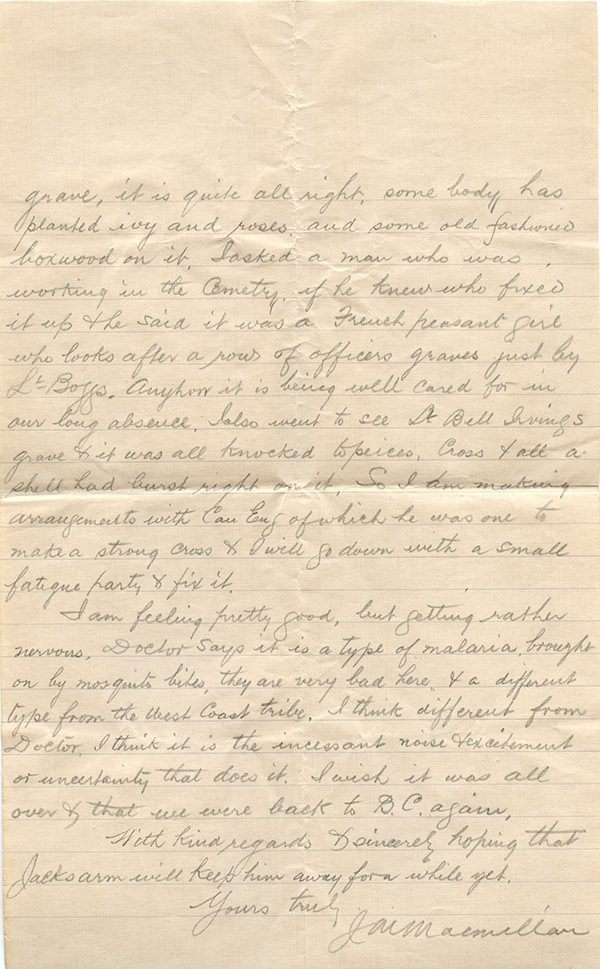 grave, it is quite all right, some body has
planted ivy and roses, and some old fashioned
boxwood on it, I asked a man who was
working in the Cemetry, if he knew who fixed
it up & he said it was a French peasant girl
who looks after a row of officers graves just by
Lt Boggs. Anyhow it is being well cared for in
our long absence. I also went to see Lt Bell Irvings
grave & it was all knocked to peices, Cross & all a
shell had burst right on it, So I am making
arrangements with Can Eng of which he was one to
make a strong cross & I will go down with a small
fatigue party & fix it.
I am feeling pretty good, but getting rather
nervous, Doctor says it is a type of malaria, brought
on by mosquito bites, they are very bad here, & a different
type from the West Coast tribe, I think different from
Doctor, I think it is the incessant noise & excitement
or uncertainty that does it. I wish it was all
over & that we were back to B.C. again,
With kind regards & sincerely hoping that
Jacks arm will keep him away for a while yet.
Yours truly
Macmillan